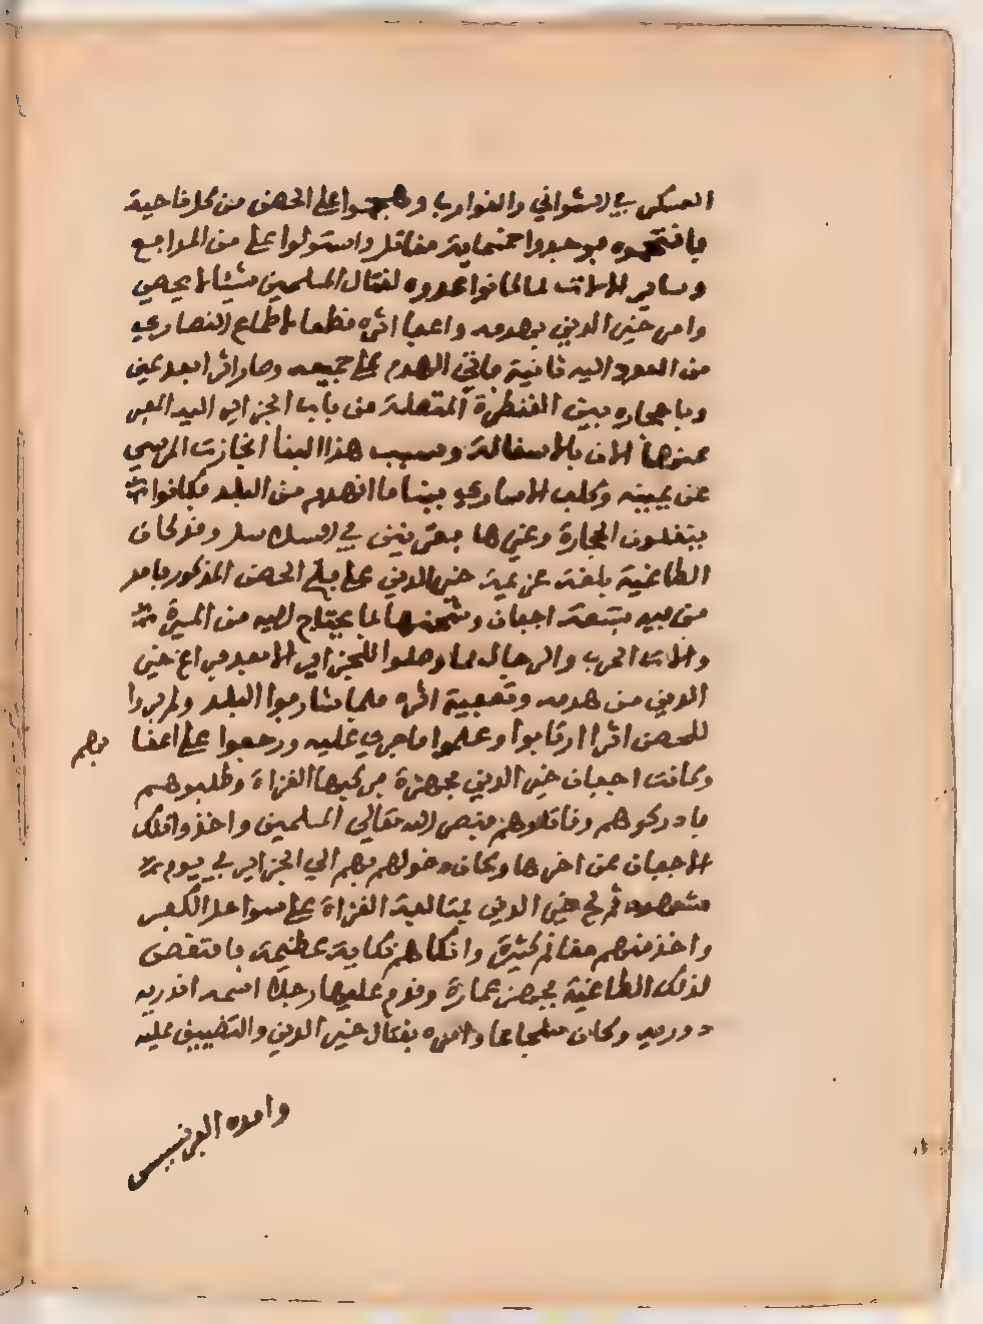 العسكر في الشواني والقوارب وهجموا على الحصن من كل ناحية
فافتتحوه فوجدوا خمسماية مقاتل واستولوا على من المدافع
وساير الالات لما كانوا اعدوه لقتال المسلمين شيئا لا يحصي
وامر خير الدين بهدمه واعفا اثره قطعا لاطماع النصاري
من العود اليه ثانية فاتي الهدم على جميعه وصار اثرا بعد عين
وباحجاره بني القنطرة المتصلة من باب الجزاير اليه المعبر
عنها الان بالاسقالة وبسبب هذا البنا انحازت المرسي
عن يمينه وكلف الاساري ببنا ما انهدم من البلد فكانوا
ينقلون الحجارة وغيرها مقرنين في السلاسل وقد كان
الطاغية بلغه عزيمة خير الدين على الحصن المذكور فامد
من فيه بتسعة اجفان وشحنها لما يحتاج اليه من الميرة
والات الحرب والرجال فما وصلوا للجزاير الا بعد فراغ خير
الدين من هدمه وتعفية اثره فلما شارفوا البلد ولم يروا
للحصن اثرا ارتابوا وعلموا ما جري عليه ورجعوا على اعقا بهم
وكانت اجفان خير الدين مجهزة فركبها الغزاة وطلبوهم
فادركوهم وقاتلوهم فنصر الله تعالي المسلمين واخذوا تلك
الاجفان عن اخرها وكان دخولهم بهم الي الجزاير في يوم
مشهود ثم لج خير الدين بمتابعة الغزاة على سواحل الكفر
واخذ منهم مغانم كثيرة وانكاهم نكاية عظيمة فامتعض
لذلك الطاغية فجهز عمارة وقدم عليها رجلا اسمه اندريه
دوريه وكان شجاعا وامره بقتال خير الدين والتضييق عليه
وامده الفرنسيس